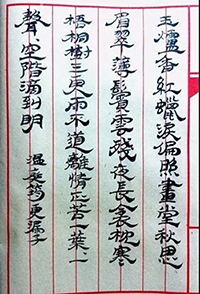 玉爐香紅蠟淚偏照畫堂秋思
眉翠薄鬢雲殘夜長衾枕寒
梧桐樹三更雨不道離情正苦一葉〻一
聲空階滴到明
溫庭筠更漏子